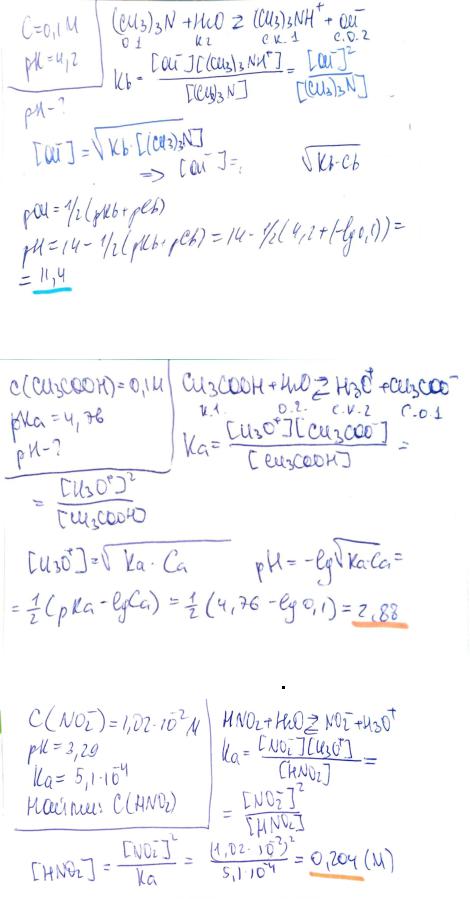 C=0,1M
pK=4,2
pH-?
(CH3)3N + H2O ⇄ (CH3)3NH⁺ + OH⁻
O1 K2 C.K.1 C.O.2
Kb = [OH⁻][(CH3)3NH⁺]/[(CH3)3N] = [OH⁻]²/[(CH3)3N]
[OH⁻]=√Kb·[(CH3)3N]
⇒ [OH⁻]=: √Kb·Cb
pOH=1/2(pKb+pCb)
pH=14-1/2(pKb+pCb)=14-1/2(4,2+(-lg0,1))=
= 11,4
C(CH3COOH)=0,1M
pKa=4,76
pH-?
CH3COOH+H2O ⇄ H3O⁺+CH3COO⁻
K.1. O.2. C.K.2 C.O.1
Ka = [H3O⁺][CH3COO⁻]/[CH3COOH] =
= [H3O⁺]²/[CH3COOH]
[H3O⁺]=√Ka·Ca pH=-lg√Ka·Ca=
= 1/2(pKa-lgCa) = 1/2(4,76-lg0,1)=2,88
C(NO2⁻)=1,02·10⁻²M
pK=3,29
Ka=5,1·10⁻⁴
Найти: C(HNO2)
HNO2+H2O ⇄ NO2⁻+H3O⁺
Ka = [NO2⁻][H3O⁺]/[HNO2] =
= [NO2⁻]²/[HNO2]
[HNO2] = [NO2⁻]²/Ka = (1,02·10⁻²)²/5,1·10⁻⁴ = 0,204 (M)